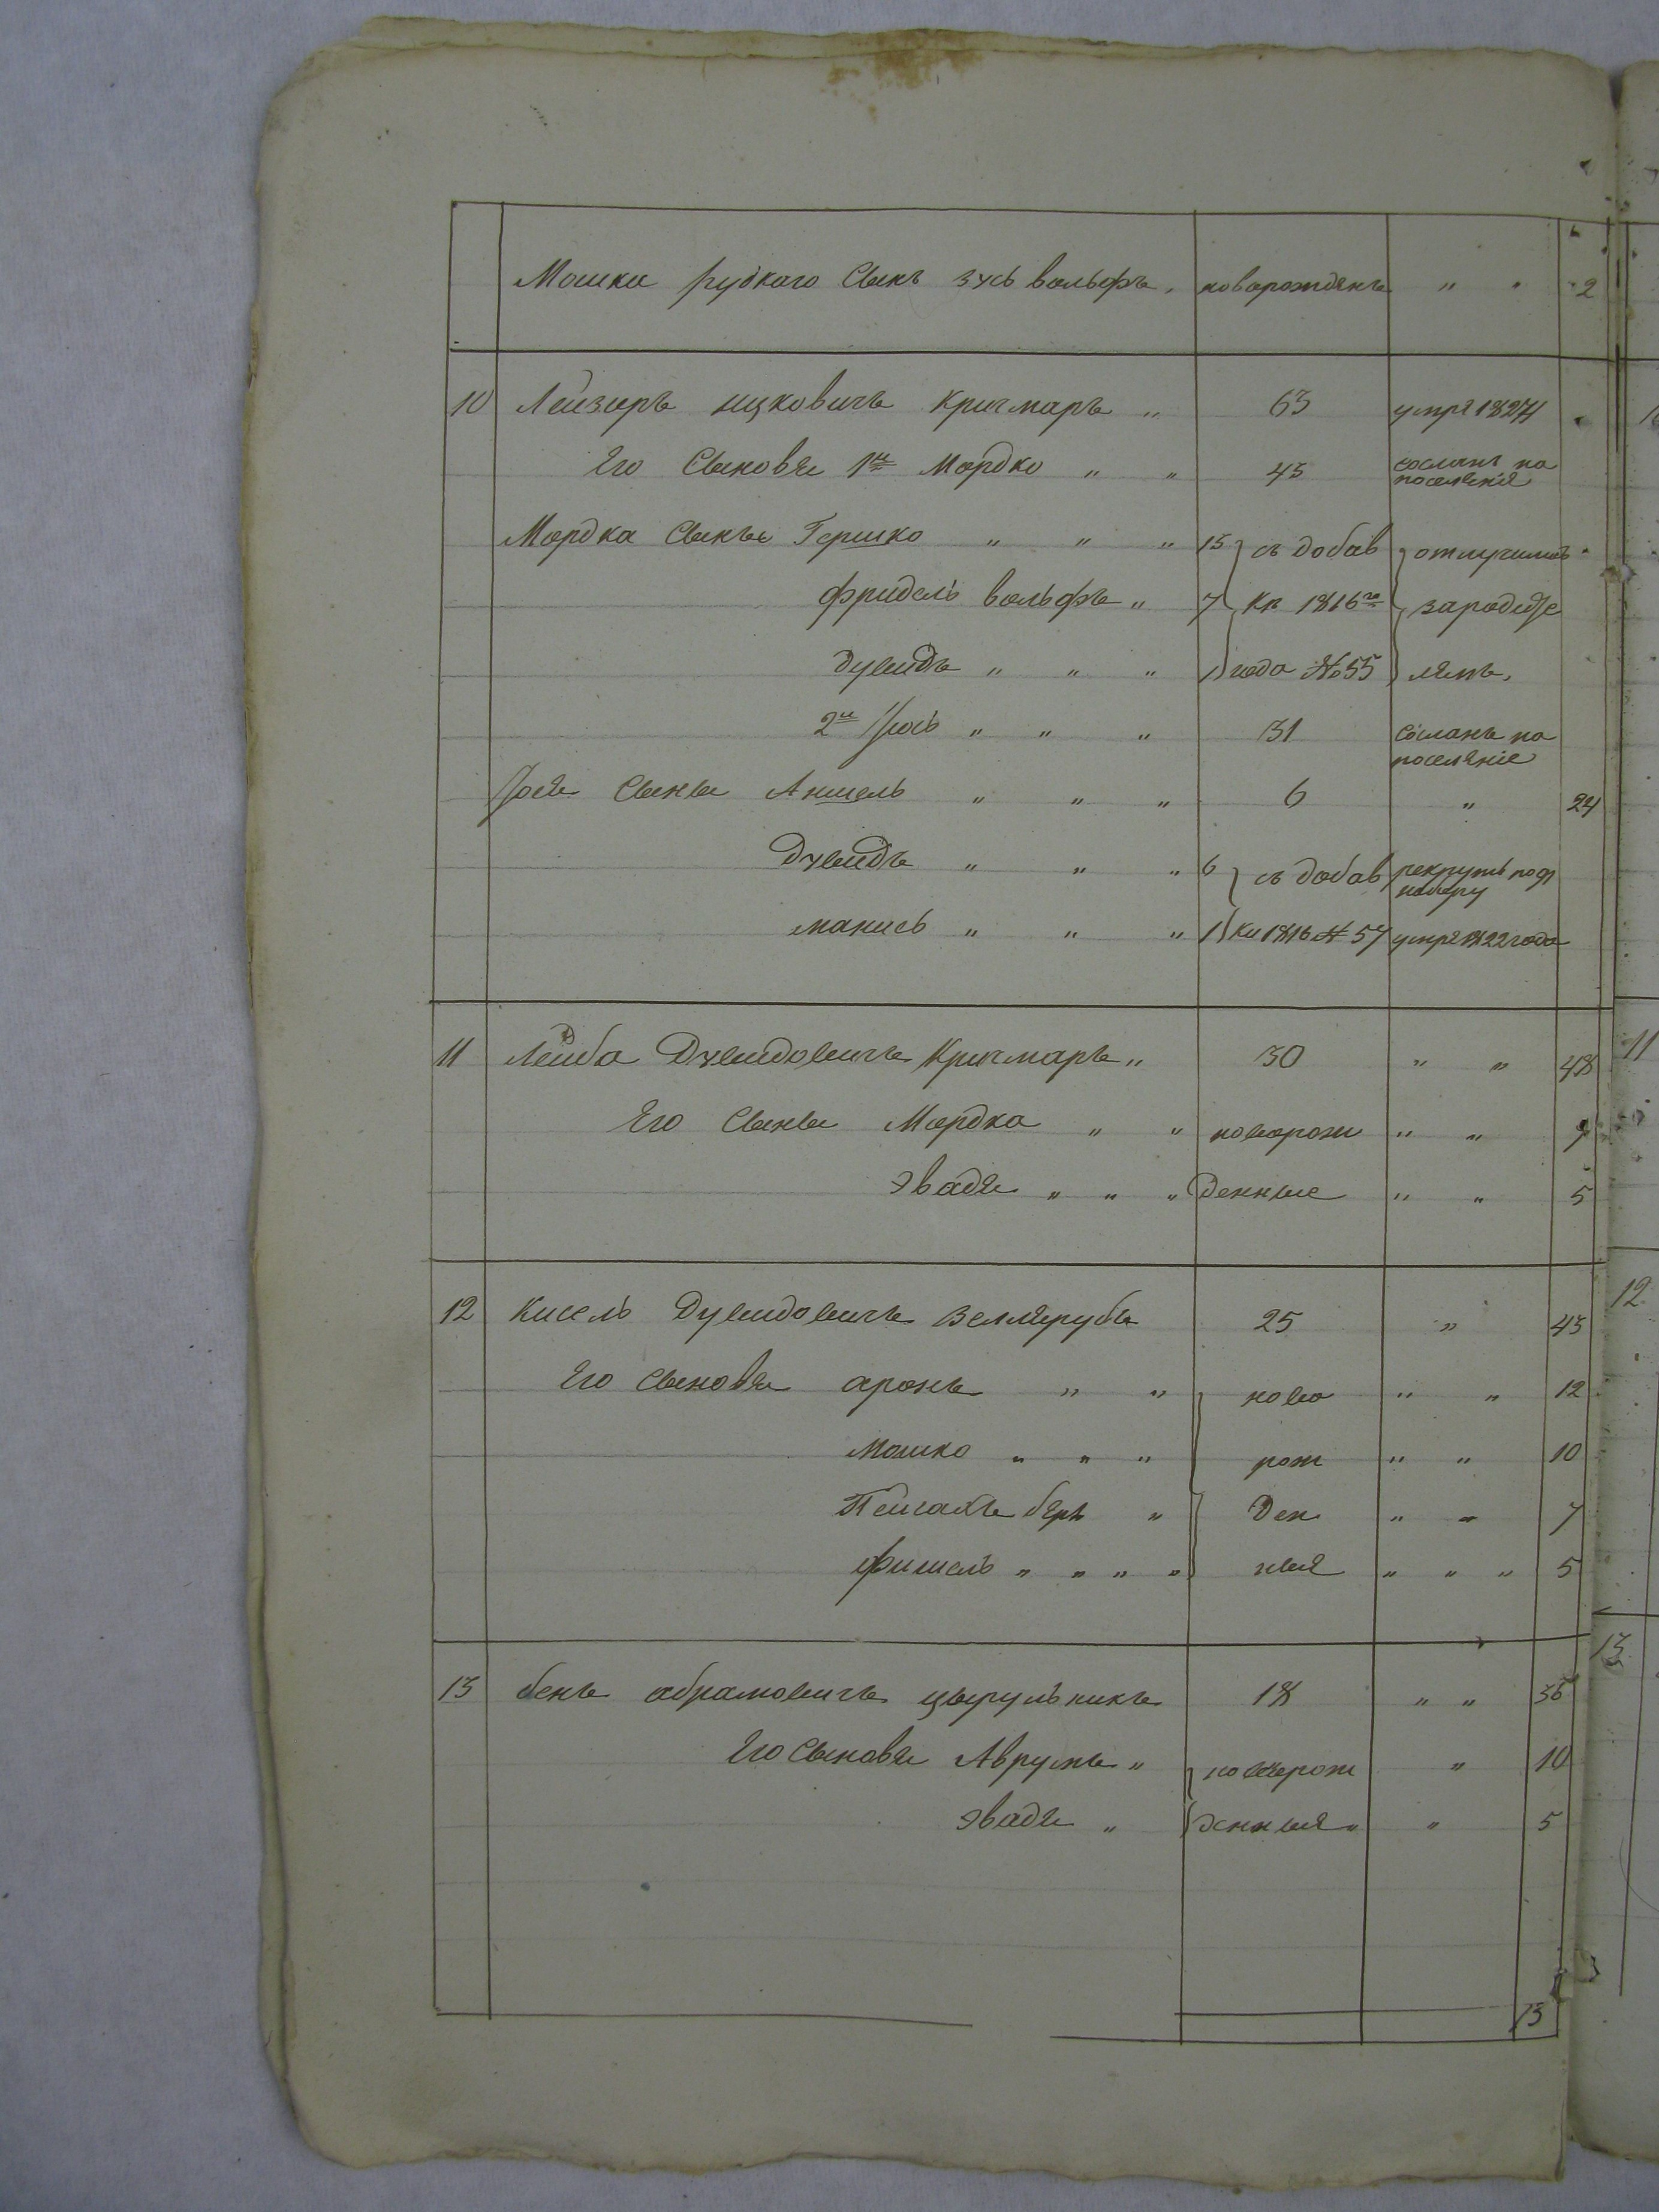 Мошки рудкаго Сынъ зусь вольфъ, новорожденъ " " 2
10 Лейзоръ ицковичъ Кричмаръ " 63 умре 1827
Его Сыновя 1й Мордко " " 43 сосланъ на поселенiя
Мордка Сынъ Гершко " " " 15 съ добав отлучились
фридель вольфъ " 7 ки 1816го зародите
дувидъ " " " 1 года №55 лемъ,
2й Іось " " " 31 Сосланъ на поселение
Іося Сыны Аншель " " " 6 " 24
Дувидъ " " " 6 съ добав рекрутъ подъ
манись " " " 1 ки 1816 № 57 умре 1822 года
11 Лейба Дувидовичъ Кричмаръ " 30 " " 48
Его Сыны Мордка " " новорож " " 7
Эвадя " " " денные " " 5
12 Кисель Дувидовичъ Веллерубъ 25 " 43
Его Сыновя аронъ " " ново " " 12
Мошко " " " рож " " 10
Пейсахъ беръ " ден " " 7
фишель " " " " ные " " " 5
13 бенъ абрамовичъ цырульникъ 18 " " 36
Его Сыновя Аврумъ " новорож " 10
Эвадя " денныя " " 5
13
11
12
13